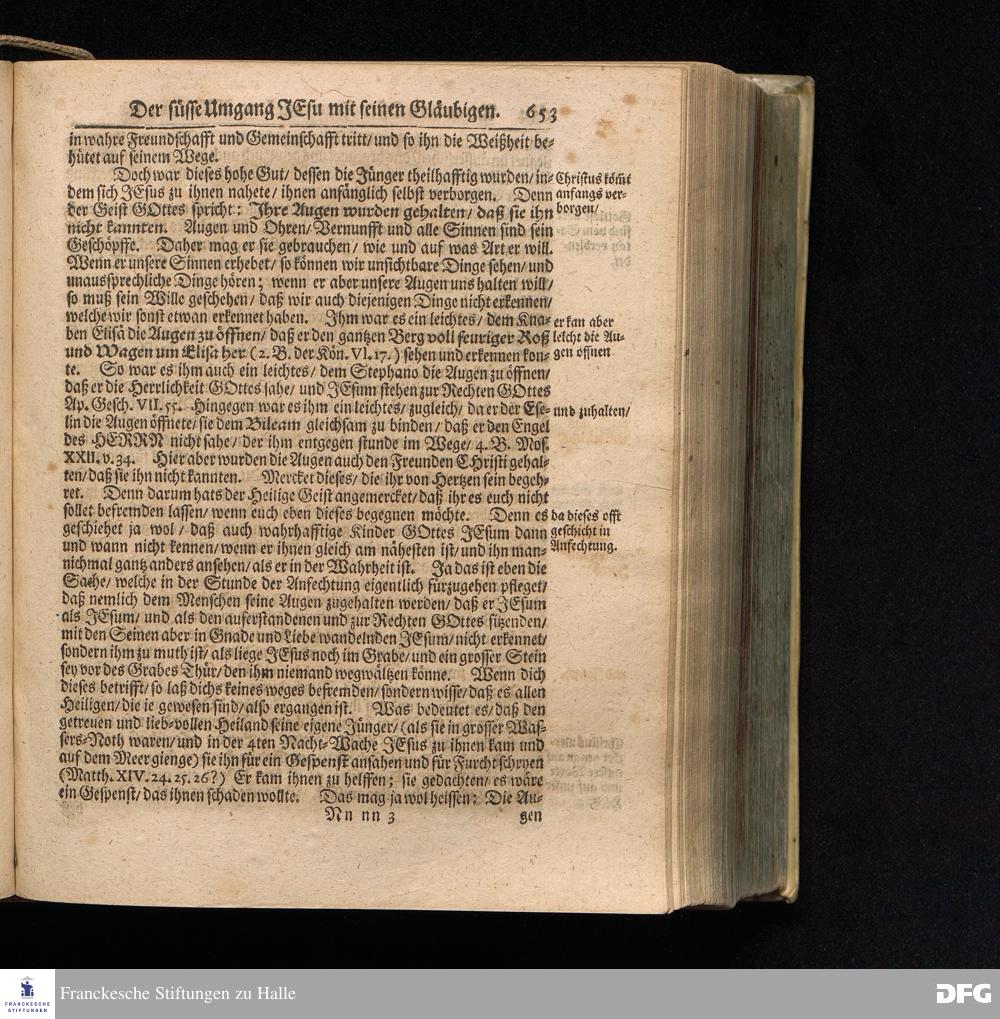 Der süsse Umgang JEsu mit seinen Gläubigen. 653
in wahre Freundschafft und Gemeinschafft tritt/ und so ihn die Weißheit be-
hütet auf seinem Wege.
Doch war dieses hohe Gut/ dessen die Jünger theilhafftig wurden/ in-
dem sich JEsus zu ihnen nahete/ ihnen anfänglich selbst verborgen. Denn
der Geist GOttes spricht: Ihre Augen wurden gehalten/ daß sie ihn
nicht kannten. Augen und Ohren/ Vernunfft und alle Sinnen sind sein
Geschöpffe. Daher mag er sie gebrauchen/ wie und auf was Art er will.
Wenn er unsere Sinnen erhebet/ so können wir unsichtbare Dinge sehen/ und
unaussprechliche Dinge hören; wenn er aber unsere Augen uns halten will/
so muß sein Wille geschehen/ daß wir auch diejenigen Dinge nicht erkennen/
welche wir sonst etwan erkennet haben. Ihm war es ein leichtes/ dem Kna-
ben Elisä die Augen zu öffnen/ daß er den gantzen Berg voll feuriger Roß
und Wagen um Elisa her (2. B. der Kön. VI. 17.) sehen und erkennen kon-
te. So war es ihm auch ein leichtes/ dem Stephano die Augen zu öffnen/
daß er die Herrlichkeit GOttes sahe/ und JEsum stehen zur Rechten GOttes
Ap. Gesch. VII. 55. Hingegen war es ihm ein leichtes/ zugleich/ da er der Ese-
lin die Augen öffnete/ sie dem Bileam gleichsam zu binden/ daß er den Engel
des HERRN nicht sahe/ der ihm entgegen stunde im Wege/ 4. B. Mos.
XXII. v. 34. Hier aber wurden die Augen auch den Freunden CHristi gehal-
ten/ daß sie ihn nicht kannten. Mercket dieses/ die ihr von Hertzen sein begeh-
ret. Denn darum hats der Heilige Geist angemercket/ daß ihr es euch nicht
sollet befremden lassen/ wenn euch eben dieses begegnen möchte. Denn es
geschiehet ja wol/ daß auch wahrhafftige Kinder GOttes JEsum dann
und wann nicht kennen/ wenn er ihnen gleich am nähesten ist/ und ihn man-
nichmal gantz anders ansehen/ als er in der Wahrheit ist. Ja das ist eben die
Sache/ welche in der Stunde der Anfechtung eigentlich fürzugehen pfleget/
daß nemlich dem Menschen seine Augen zugehalten werden/ daß er JEsum
als JEsum/ und als den auferstandenen und zur Rechten GOttes sitzenden/
mit den Seinen aber in Gnade und Liebe wandelnden JEsum/ nicht erkennet/
sondern ihm zu muth ist/ als liege JEsus noch im Grabe/ und ein grosser Stein
sey vor des Grabes Thür/ den ihm niemand wegwältzen könne. Wenn dich
dieses betrifft/ so laß dichs keines weges befremden/ sondern wisse/ daß es allen
Heiligen/ die ie gewesen sind/ also ergangen ist. Was bedeutet es/ daß den
getreuen und lieb-vollen Heiland seine eigene Jünger/ (als sie in grosser Was-
sers-Noth waren/ und in der 4ten Nacht-Wache JEsus zu ihnen kam und
auf dem Meer gienge) sie ihn für ein Gespenst ansahen und für Furcht schryen
(Matth. XIV. 24. 25. 26?) Er kam ihnen zu helffen; sie gedachten/ es wäre
ein Gespenst/ das ihnen schaden wollte. Das mag ja wol heissen: Die Au-
Nn nn 3 gen
Christus kömt
anfangs ver-
borgen/
er kan aber
leicht die Au-
gen öffnen
und zuhalten/
da dieses offt
geschicht in
Anfechtung.
FRANCKESCHE
STIFTUNGEN
Franckesche Stiftungen zu Halle
DFG